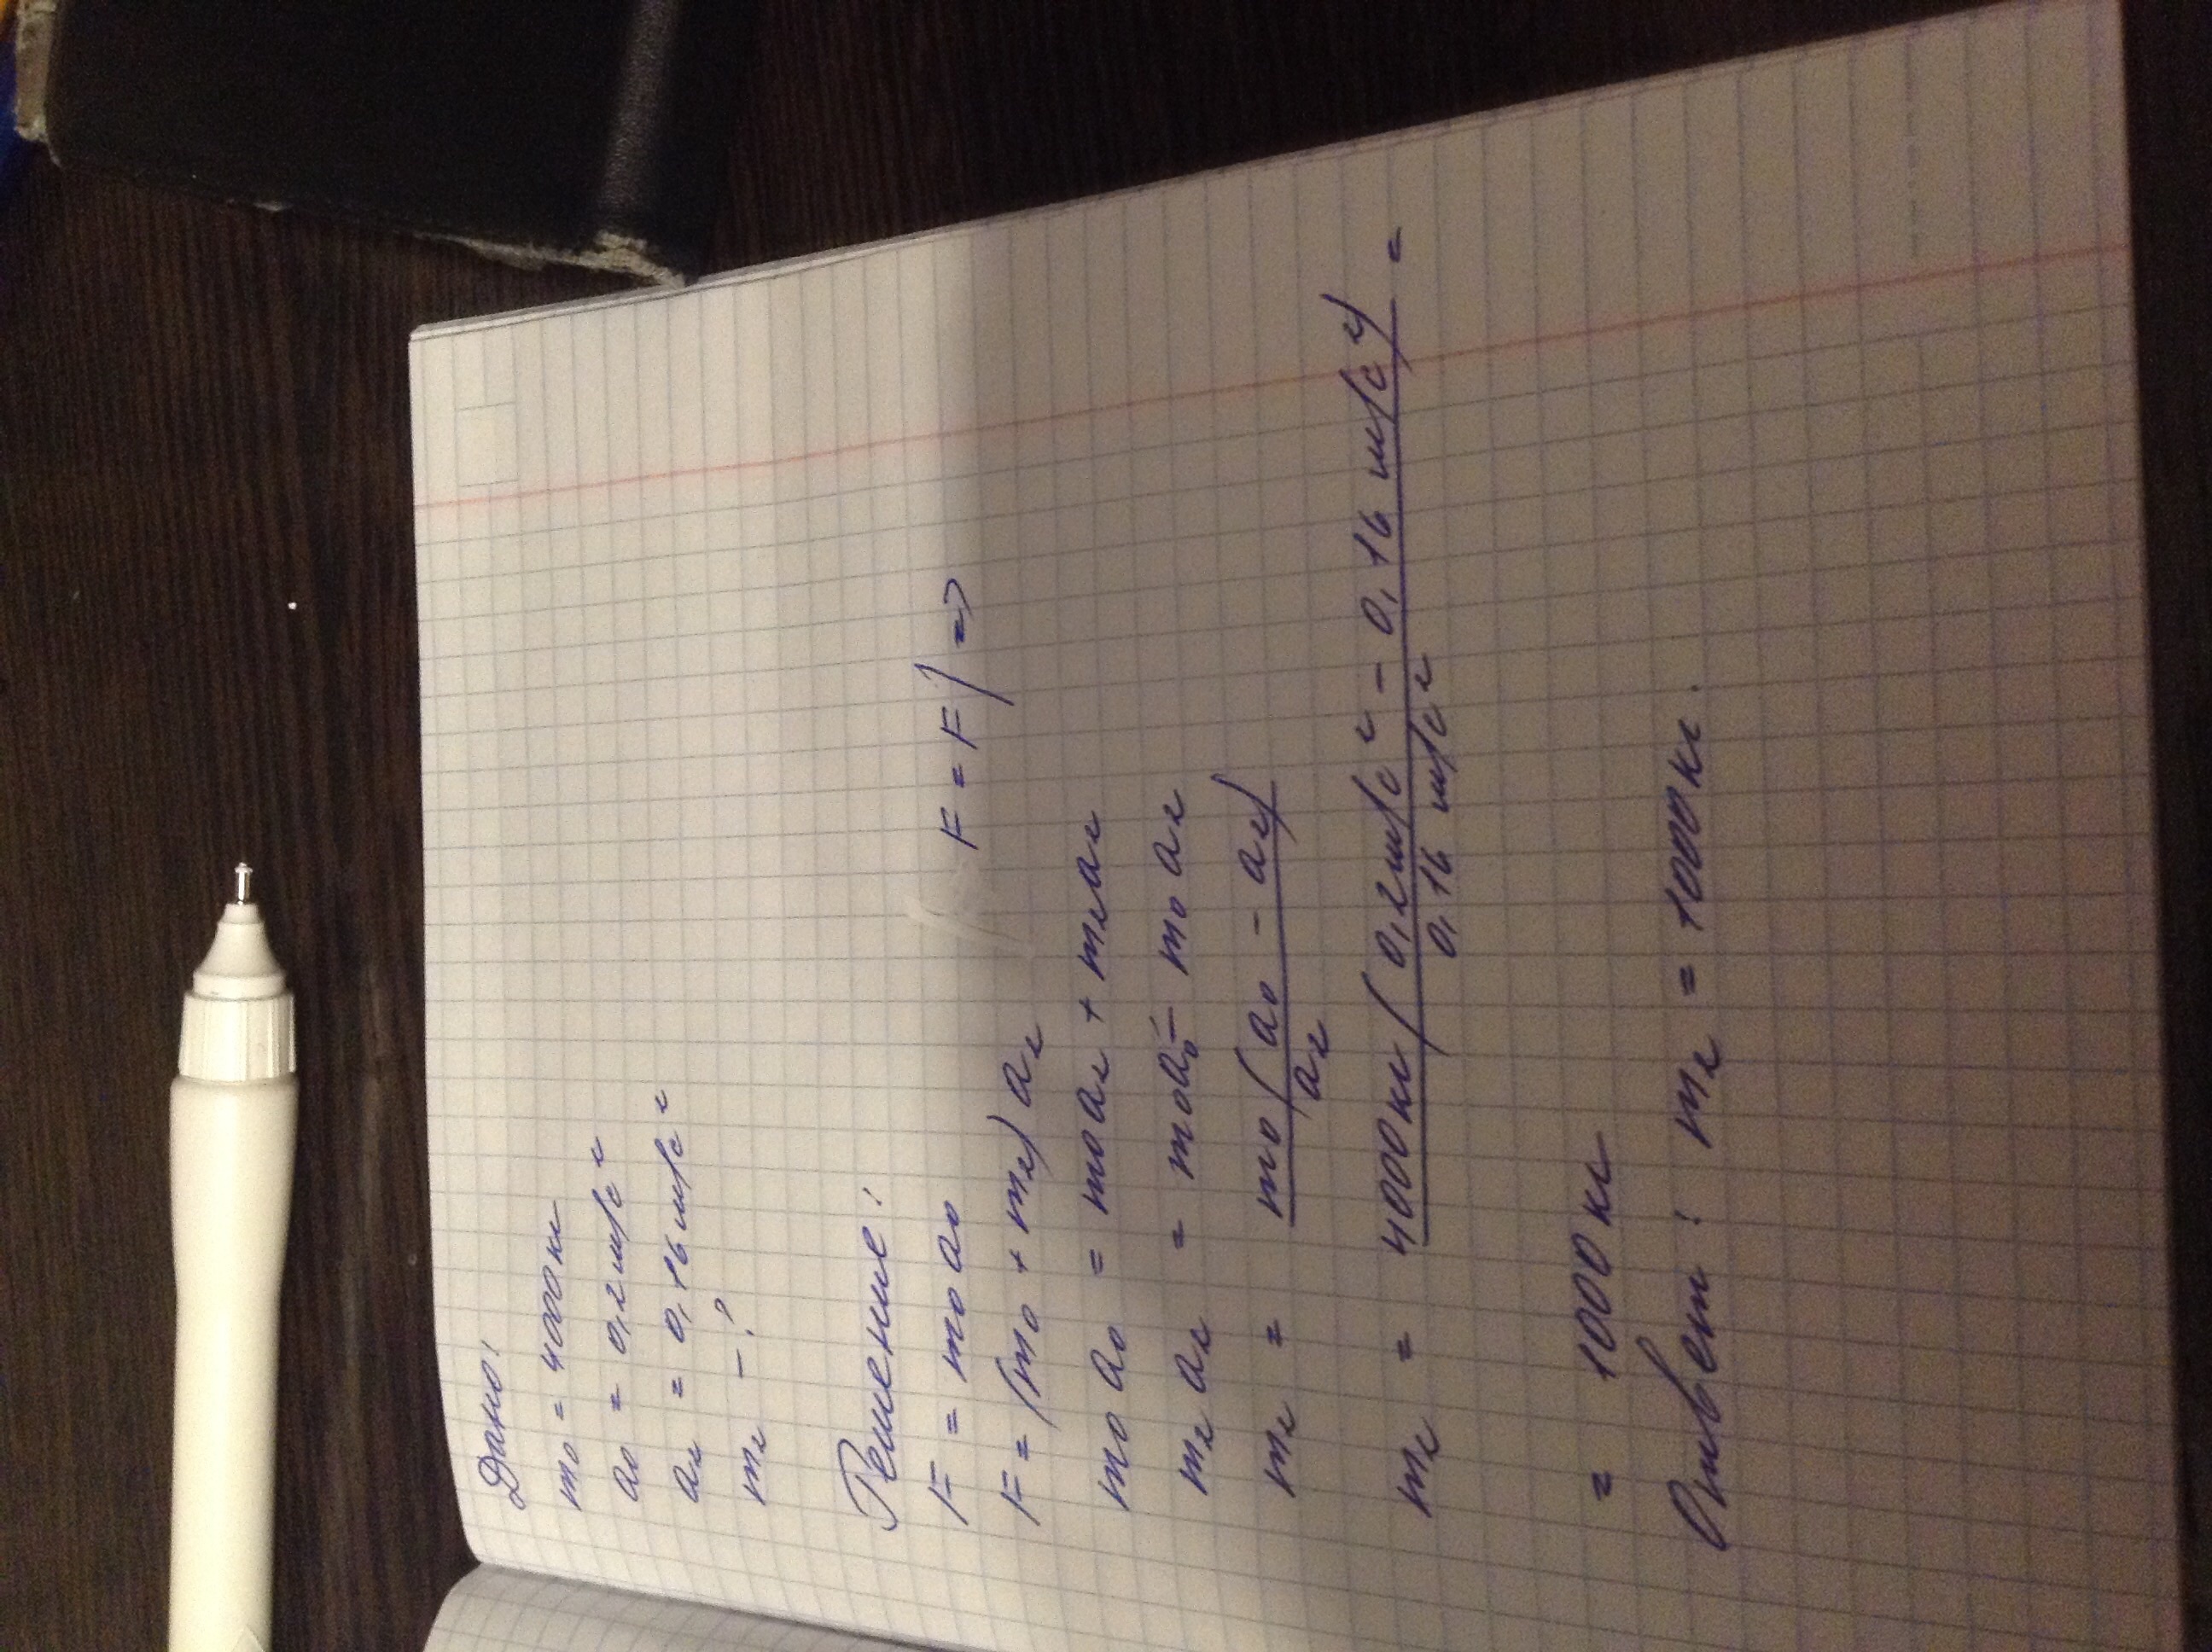 Дано:
m₀ = 4000 кг
a₀ = 0,2 м/с²
a₂ = 0,16 м/с²
m₂ - ?
Решение:
F = m₀a₀ F = F) =>
F = (m₀ + m₂) a₂
m₀a₀ = m₀a₂ + m₂a₂
m₂a₂ = m₀a₀ - m₀a₂
m₂ = m₀(a₀ - a₂) / a₂
m₂ = 4000 кг (0,2 м/с² - 0,16 м/с²) / 0,16 м/с² =
= 1000 кг
Ответ: m₂ = 1000 кг.